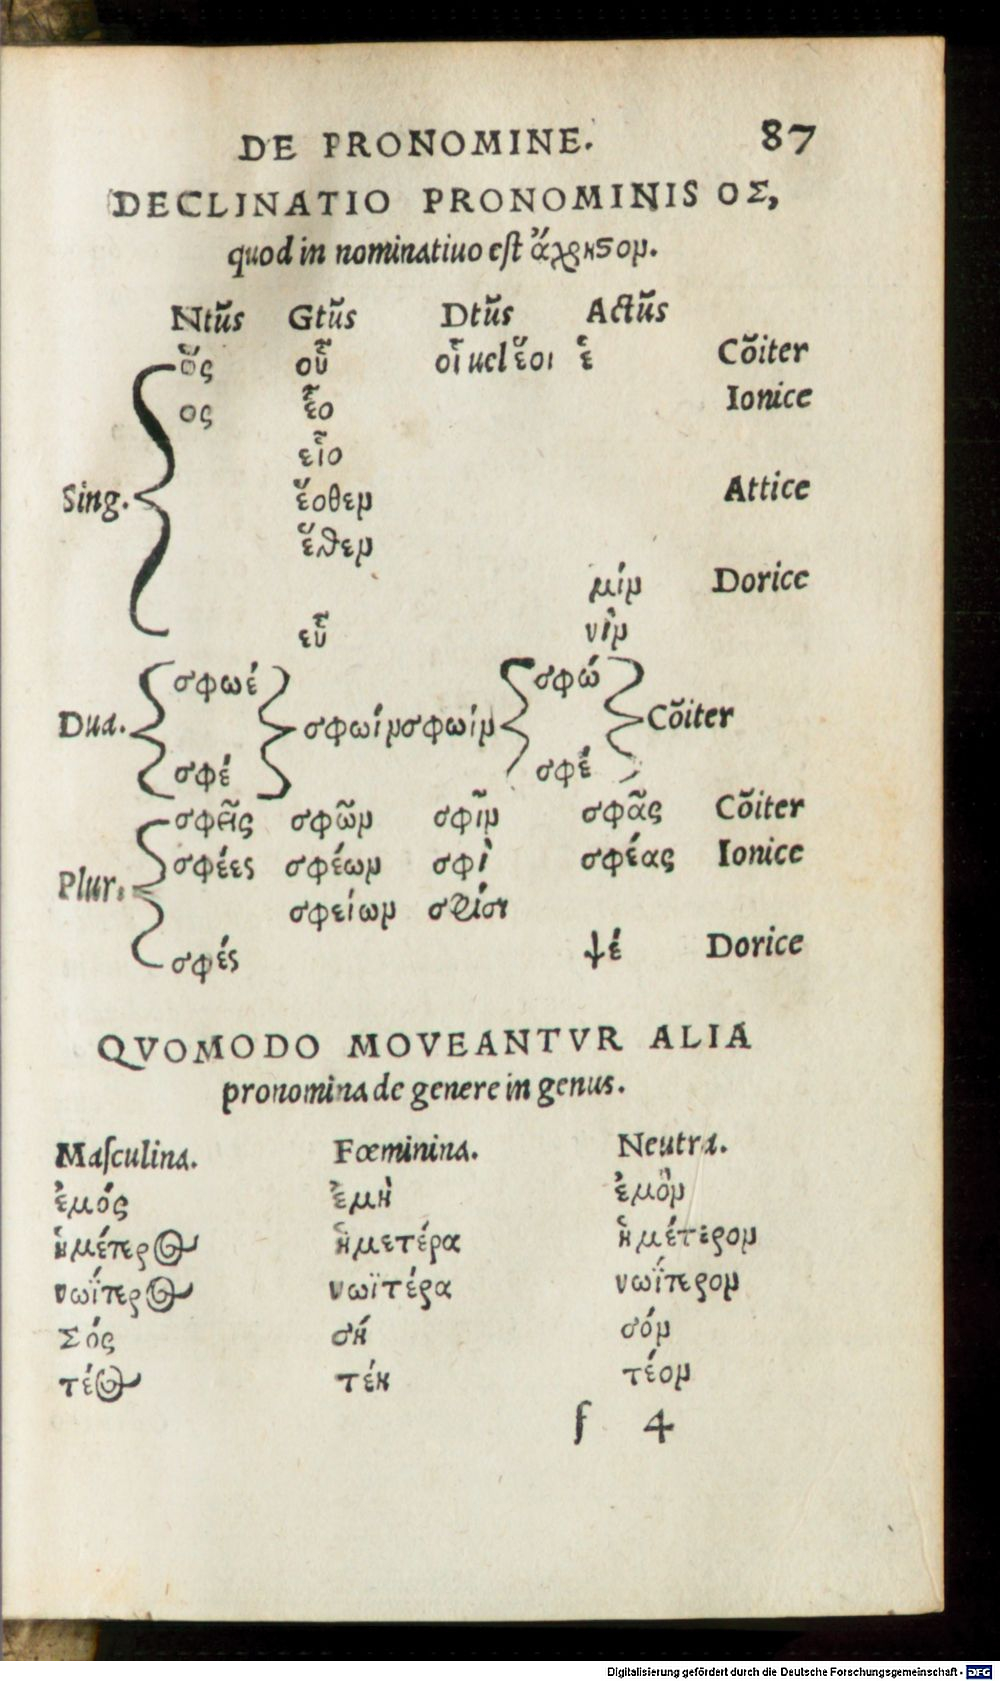 DE PRONOMINE. 87
DECLINATIO PRONOMINIS ΟΣ,
quod in nominatiuo eſt ἄχρηστον.
Ntũs Gtũs Dtũs Actũs
ὅς οὗ οἷ uel ἕοι ἓ Cõiter
ος ἕο Ionice
εἷο
Sing. ἕοθεν Attice
ἕθεν
μίν Dorice
εὗ νὶν
σφωέ σφώ
Dua. σφωίν σφωίν Cõiter
σφέ σφέ
σφεῖς σφῶν σφῖν σφᾶς Cõiter
σφέες σφέων σφὶ σφέας Ionice
Plur.
σφείων σφίσι
σφές ψέ Dorice
QVOMODO MOVEANTVR ALIA
pronomina de genere in genus.
Maſculina. Fœminina. Neutra.
ἐμός ἐμὴ ἐμὸν
ἡμέτερος ἡμετέρα ἡμέτερον
νωΐτερος νωϊτέρα νωΐτερον
Σός σή σόν
τέος τέη τέον
f 4
Digitalisierung gefördert durch die Deutsche Forschungsgemeinschaft - DFG